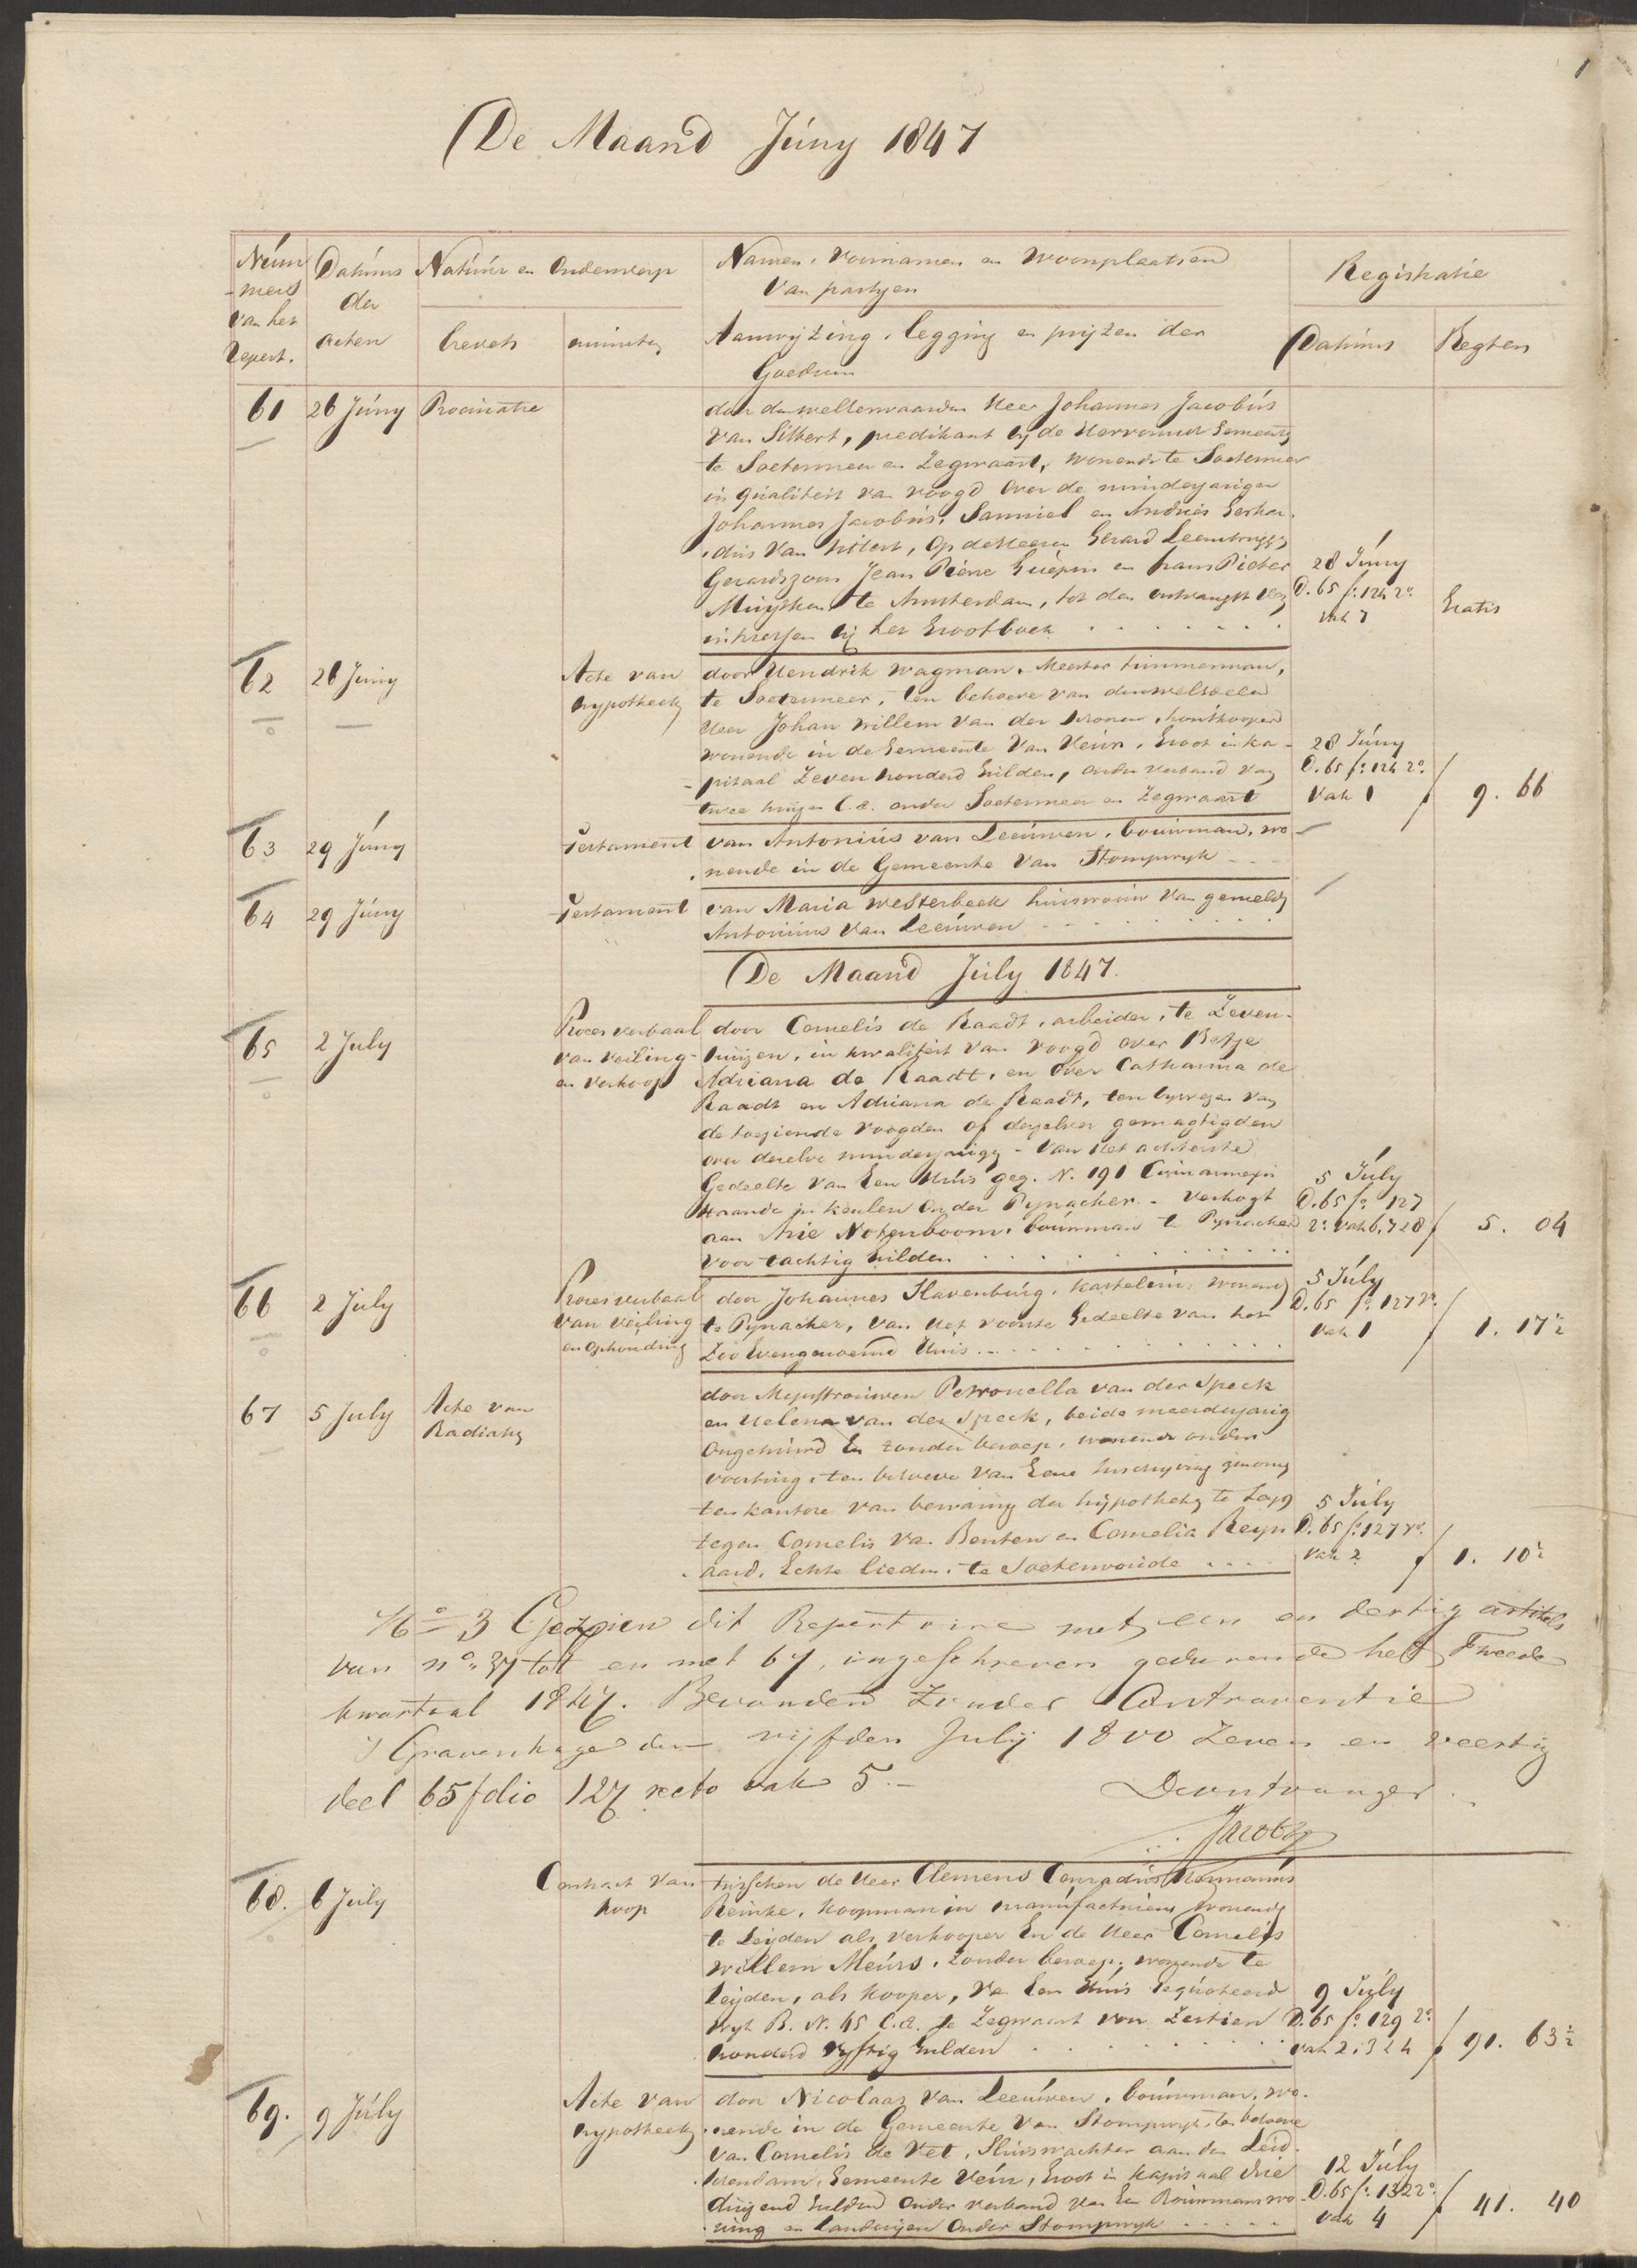 1
De Maand Júny 1847
Núm
-mers
van het
Repert.
Datúms
der
acten
Natúúr en Onderwerp
brevets
minúten
Namen, Voornamen en Woonplaatsen
van partyen
Aanwyzing, legging en pryzen der
Goederen
Registratie
Datúms
Regten
61 26 Júny Procúratie
door den weleerwaarden Heer Johannes Jacobús
van Sittert, predikant by de Hervormde Gemeente
te Soetermeer en Zegwaart, wonende te Soetermeer
in qúaliteit van voogd over de minderjarigen
Johannes Jacobús, Samúel en Andries Gerhar
dús van Sittert, op de Heeren Gerard
Gerardszoon Jean Pierre Gúépin en frans Pieter
Múysken te Amsterdam, tot den ontvangst van
intressen by het Grootboek
28 Júny
D. 65 f° 124 r°
vak 7
Gratis
62 26 Júny Acte van
hypotheek
door Hendrik Wagman, Meester timmerman,
te Soetermeer, ten behoeve van den weledelen
Heer Johan Willem van der Kroon, hoútkooper
wonende in de Gemeente van Veúr, Groot in ka-
-pitaal Zeven honderd Gúlden, onder verband van
twee húizen C.a. onder Soetermeer en Zegwaart
28 Júny
D. 65 f° 124 r°
Vak 1
f 9. 66
63 29 Júny Testament van Antoniús van Leeúwen, boúwman, wo-
nende in de Gemeente van Stompwyk
64 29 Júny Testament van Maria Westerbeek húisvroúw van gemelde
Antoniús van Leeúwen
De Maand Júly 1847.
65 2 Júly Proces verbaal
van Veiling
en Verkoop
door Cornelis de Raadt, arbeider, te Zeven-
húizen, in kwaliteit van voogd over Betje
Adriana de Raadt, en over Catharina de
Raadt en Adriana de Raadt, ten bywezen van
de toeziende voogden of derzelver gemagtigden
over dezelve minderjarigen - van Het achterste
Gedeelte van Een Húis geg. N. 191 Cúm annexis
staande in Keulen onder Pynacker - Verkogt
aan Arie Notenboom, boúwman te Pynacker
voor tachtig Gúlden
5 Júly
D. 65 f° 127
r° vak 6, 7 & 8
f 5. 04
66 2 Júly Proces verbaal
van Veiling
en Ophoúding
door Johannes Havenbúrg, kastelein, wonende
te Pynacker, van Het voorste Gedeelte van het
Zoo Evengenoemd Húis
5 Júly
D. 65 f° 127 v°
vak 1
f 1. 17½
67 5 Júly Acte van
Radiatie
door Mejúffroúwen Petronella van der Speek
en Helena van der Speek, beide meerderjarig
Ongehúwd En zonder beroep, wonende onder
voorbúrg, ten behoeve van Eene Inschryving genomen
ten kantore van bewaring der hypotheken te
tegen Cornelis van Benten en Cornelia Reyn
aard, Echte lieden, te Soeterwoúde
5 Júly
D. 65 f° 127 v°
vak 2
f 1. 10½
N° 3 Gezien dit Repertoire met een en dertig artikels
van n° 37 tot en met 67, ingeschreven gedurende het Tweede
kwartaal 1847. Bevonden Zonder Contraventie
's Gravenhage den vyfden July 1800 Zeven en veertig
deel 65 folio 127 recto vak 5.-
De ontvanger
Jacobs
68. 6 Júly Contract van
koop
tússchen de Heer Clemens Conradús Hermanús
Reinke, koopman in manúfactúúren wonende
te Leyden als verkooper En de Heer Cornelis
Willem Meúrs, zonder beroep, wonende te
Leyden, als kooper, van Een Húis Gequoteerd
wyk B. N. 45 C.a. te Zegwaart voor Zestien
honderd vyftig Gulden
9 Júly
D. 65 f° 129 r°
vak 2, 3 & 4
f 91. 63½
69. 9 Júly Acte van
hypotheek
door Nicolaas van Leeúwen, boúwman, wo-
nende in de Gemeente van Stompwyk, ten behoeve
van Cornelis de Vet, Slúiswachter aan den Leid-
schendam, Gemeente Veúr, Groot in kapitaal drie
dúizend Gulden onder verband van Een Boúwmanswo-
-ning en landeryen onder Stompwyk
12 Júly
D. 65 f° 132 r°
vak 4
f 41. 40